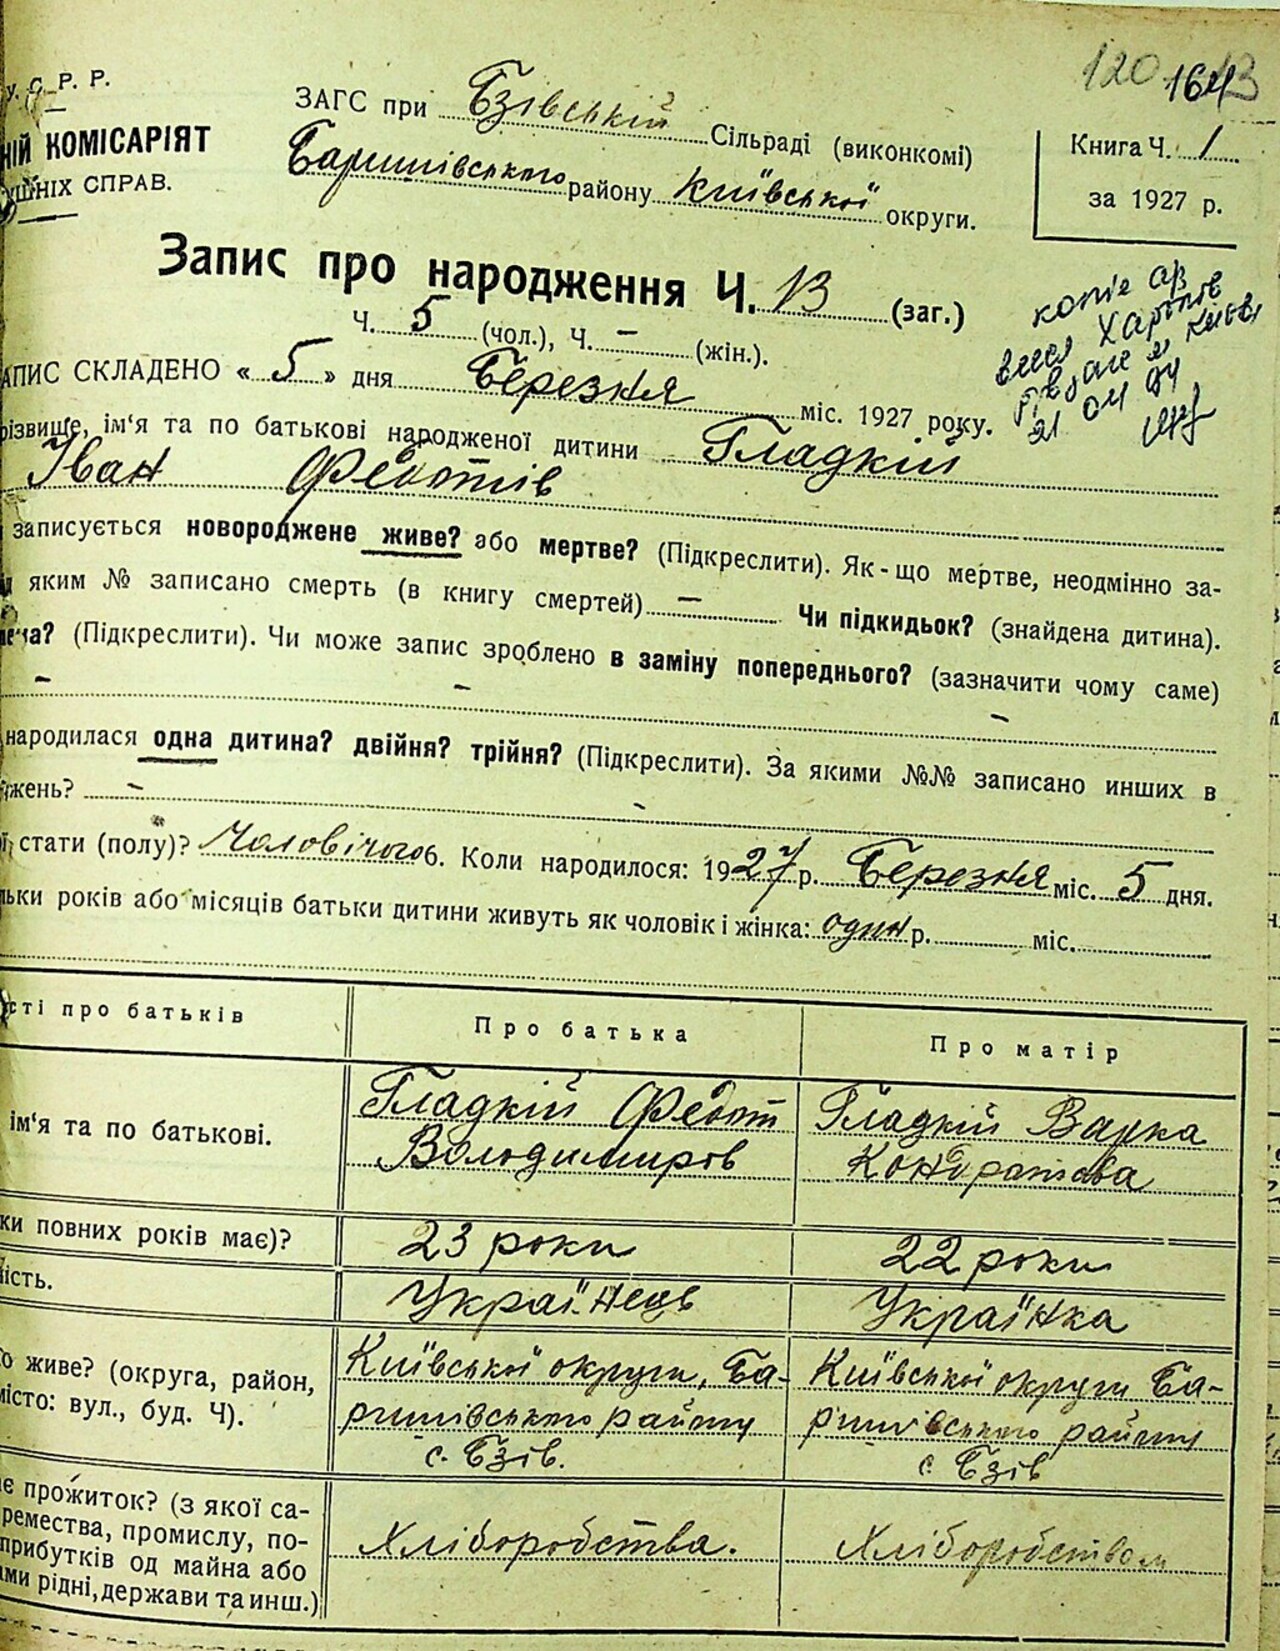 У. С. Р. Р.
НІЙ КОМІСАРІЯТ
ШНІХ СПРАВ.
ЗАГС при Бзівській Сільраді (виконкомі)
Баришівського району Київської округи.
120 164
Книга Ч. 1
за 1927 р.
Запис про народження Ч. 13 (заг.)
Ч. 5 (чол.), Ч. – (жін.).
АПИС СКЛАДЕНО « 5 » дня Березня міс. 1927 року.
різвище, ім'я та по батькові народженої дитини Гладкій
Іван Федотів
записується новороджене живе? або мертве? (Підкреслити). Як-що мертве, неодмінно за-
яким № записано смерть (в книгу смертей) – Чи підкидьок? (знайдена дитина).
(Підкреслити). Чи може запис зроблено в заміну попереднього? (зазначити чому саме)
– – –
народилася одна дитина? двійня? трійня? (Підкреслити). За якими №№ записано инших в
жень? – –
стати (полу)? Чоловічого б. Коли народилося: 1927 р. Березня міс. 5 дня.
льки років або місяців батьки дитини живуть як чоловік і жінка: один р. міс.
сті про батьків
Про батька
Про матір
ім'я та по батькові.
Гладкій Федот
Володимиров
Гладкій Варка
Кондратова
ки повних років має)?
23 роки
22 роки
ність.
Українець
Українка
о живе? (округа, район,
місто: вул., буд. Ч).
Київської округи, Ба-
ришівського району
с. Бзів.
Київської округи Ба-
ришівського району
с Бзів
є прожиток? (з якої са-
ремества, промислу, по-
прибутків од майна або
ми рідні, держави та инш.)
Хліборобства.
Хліборобством